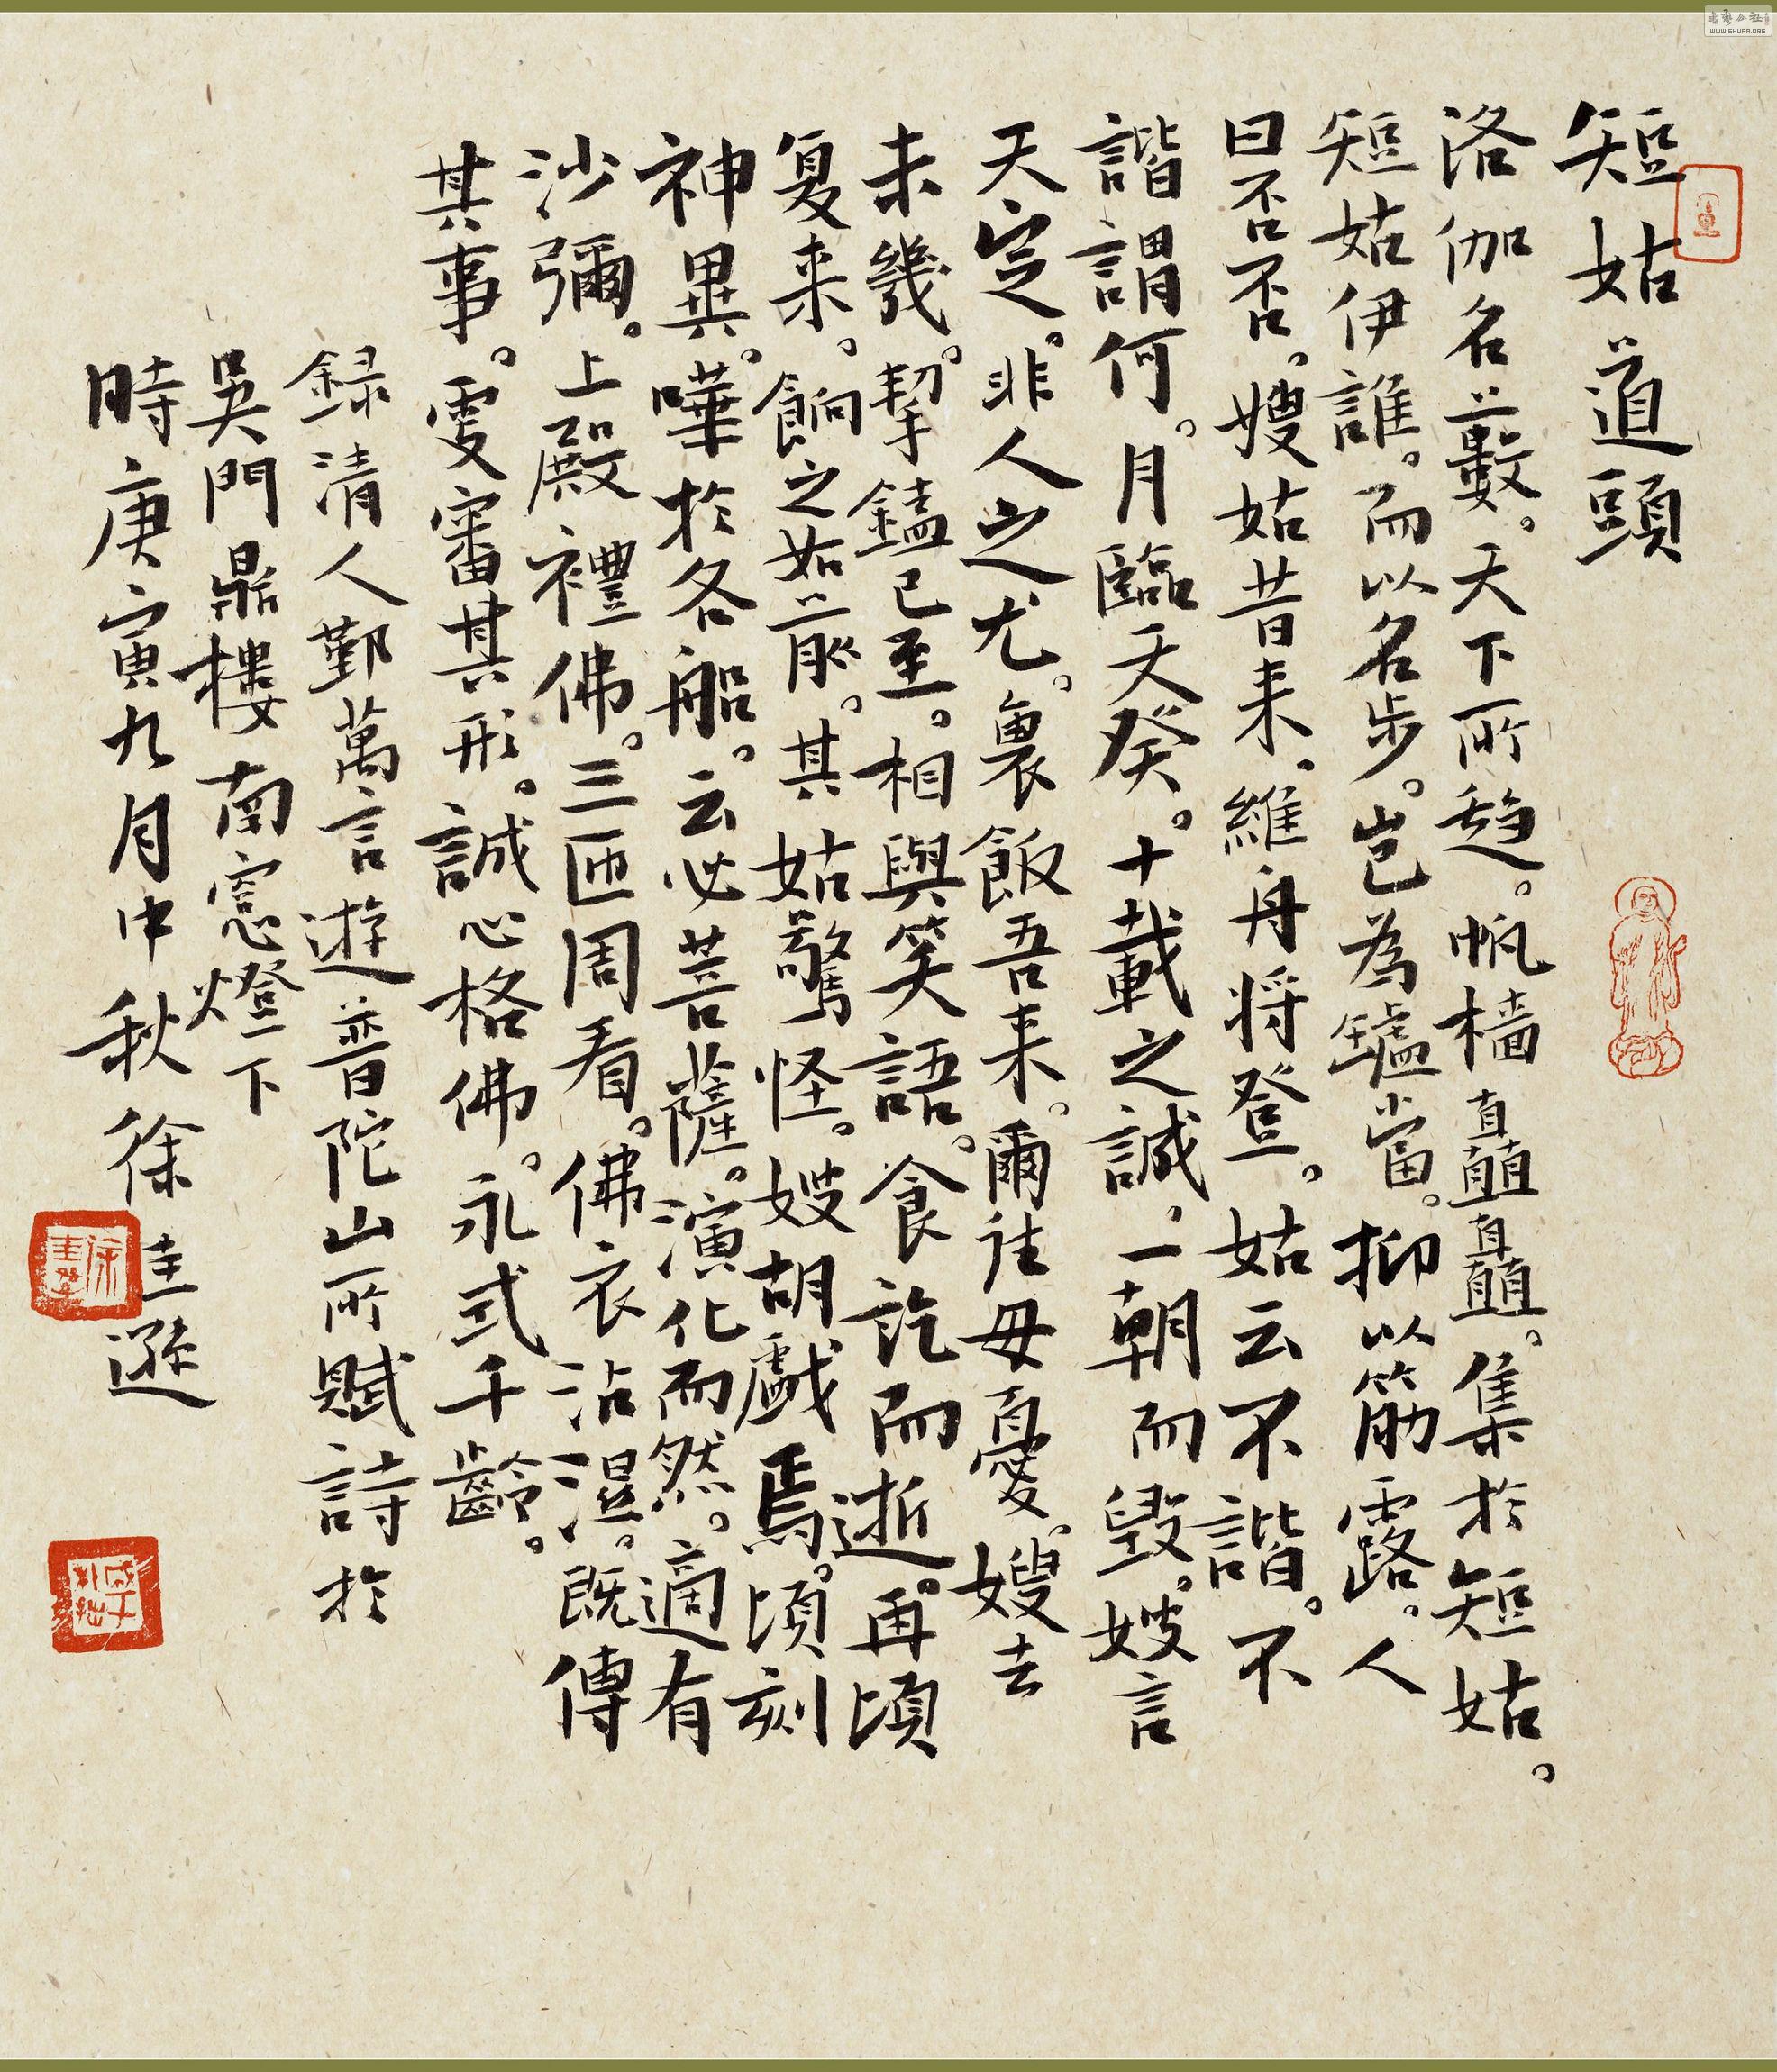 短姑道頭
洛伽名藪。天下所趨。帆檣矗矗。集於短姑。
短姑伊誰。而以名步。豈為壚當。抑以筋露。人
曰否否。嫂姑昔来。維舟将登。姑云不諧。不
諧謂何。月臨天癸。十載之誠。一朝而毀。嫂言
天定。非人之尤。裹飯吾来。爾往毋憂。嫂去
未幾。挈饁已至。相與笑語。食訖而逝。再頃
复来。餉之如前。其姑驚怪。嫂胡戲焉。頃刻
神異。嘩於各船。云必菩薩。演化而然。適有
沙彌。上殿禮佛。三匝周看。佛衣沾濕。既傳
其事。更審其形。誠心格佛。永式千齡。
録清人鄞萬言遊普陀山所賦詩於
吳門鼎樓南窓燈下
時庚寅九月中秋徐圭遜
書法公社
WWW.SHUFA.ORG